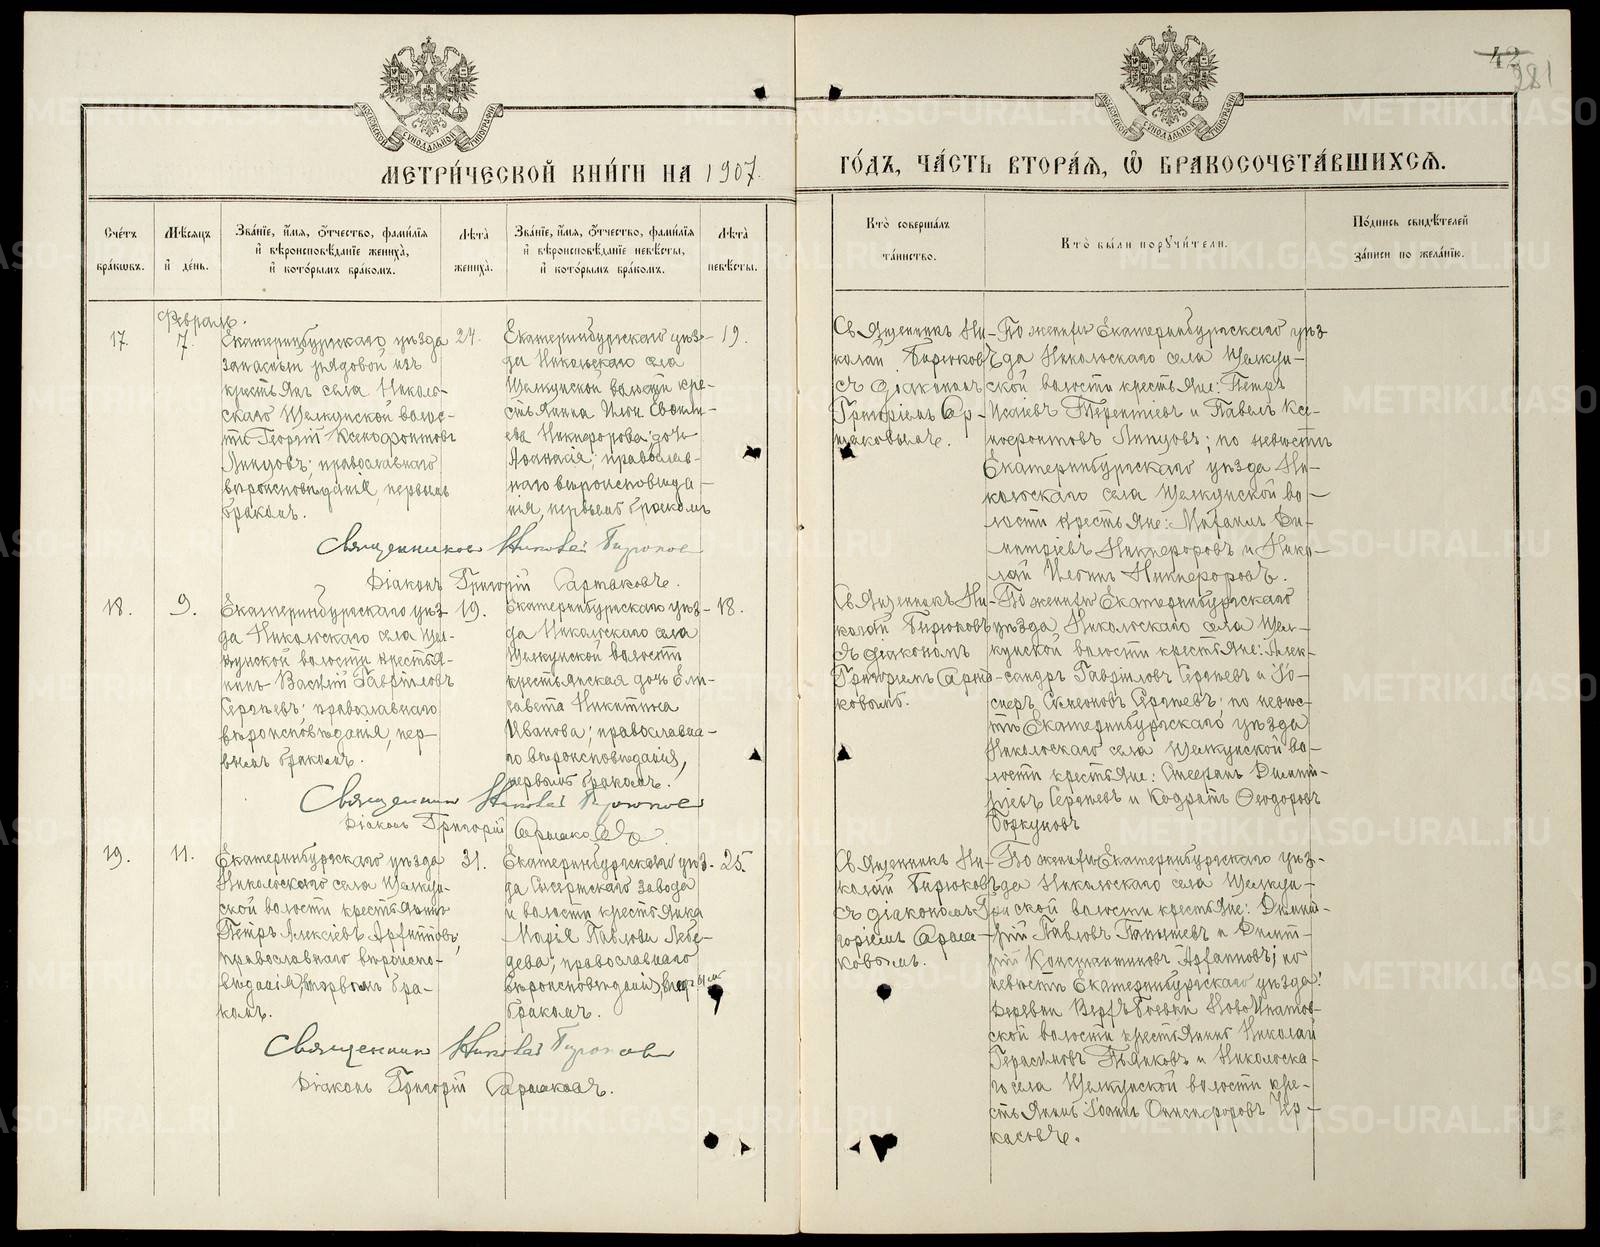 МЕТРИ́ЧЕСКОЙ КНИ́ГИ НА 1907.
ГО́ДЪ, ЧА́СТЬ ВТОРА́Я, Ѿ БРАКОСОЧЕТА́ВШИХСѦ.
42
281
Сче́тъ бра́кѡвъ.
Мѣ́сяцъ и҆ де́нь.
Зва́нїе, и҆́мя, ѻ҆́тчество, фами́лїя и҆ вѣроисповѣ́данїе жениха̀, и҆ кото́рымъ бра́комъ.
Лѣ́та жениха̀.
Зва́нїе, и҆́мя, ѻ҆́тчество, фами́лїя и҆ вѣроисповѣ́данїе невѣ́сты, и҆ кото́рымъ бра́комъ.
Лѣ́та невѣ́сты.
Кто̀ соверша́лъ та́инство.
Кто̀ бы́ли порꙋчи́тели.
По́дпись свидѣ́телей за́писи по жела́нїю.
Февраль.
17.
7
Екатеринбургскаго уѣзда
запасный рядовой изъ
крестьянъ села Николь-
скаго Щелкунской волос-
ти Георгій Ксенофонтовъ
православнаго
вѣроисповѣданія, первымъ
бракомъ.
24.
Екатеринбургскаго уѣз-
да Никольскаго села
Щелкунской волости кре-
стьянина
Никифорова дочь
православ-
наго вѣроисповѣда-
нія, первымъ бракомъ
19.
Священникъ Ни-
колай Бирюковъ
съ діакономъ
Григоріемъ
По женихѣ Екатеринбургскаго уѣз
да Никольскаго села Щелкун-
ской волости крестьяне: Петръ
Терентіевъ и Павелъ Ксе-
нофонтовъ по невѣстѣ
Екатеринбургскаго уѣзда Ни-
кольскаго села Щелкунской во-
лости крестьяне: Михаилъ Ди-
митріевъ Никифоровъ и Нико-
лай Никифоровъ.
Священникъ Николай Бирюковъ
Діаконъ Григорій
18.
9.
Екатеринбургскаго уѣз-
да Никольскаго села Щел-
кунской волости крестья-
нинъ Василій Гавріиловъ
православнаго
вѣроисповѣданія, пер-
вымъ бракомъ.
19.
Екатеринбургскаго уѣз-
да Никольскаго села
Щелкунской волости
крестьянская дочь Ели-
савета Никитина
Иванова; православна-
го вѣроисповѣданія,
первымъ бракомъ.
18.
Священникъ Ни-
колай Бирюковъ
съ діакономъ
Григоріемъ
По женихѣ Екатеринбургскаго
уѣзда Никольскаго села Щел-
кунской волости крестьяне: Алек-
сандръ Гавріиловъ и
по невѣс-
тѣ Екатеринбургскаго уѣзда
Никольскаго села Щелкунской во-
лости крестьяне: Стефанъ Димит-
ріевъ и Кодратъ Ѳеодоровъ
Священникъ Николай Бирюковъ
Діаконъ Григорій
19.
11.
Екатеринбургскаго уѣзда
Никольскаго села Щелкун-
ской волости крестьянинъ
Петръ Алексіевъ
православнаго вѣроиспо-
вѣданія, вторымъ бра-
комъ.
31.
Екатеринбургскаго уѣз-
да Сысертскаго завода
и волости крестьянка
Марія Павлова Лебе-
дева; православнаго
вѣроисповѣданія,
бракомъ.
25.
Священникъ Ни-
колай Бирюковъ
съ діакономъ Гри
горіемъ
По женихѣ Екатеринбургскаго уѣз-
да Никольскаго села Щелкун-
ской волости крестьяне: Димит-
рій Павловъ и Димит-
рій Константиновъ по
невѣстѣ Екатеринбургскаго уѣзда:
деревни Верхъ-Боевки Ново-Ипатов-
ской волости крестьянинъ Николай
Герасимовъ Пьянковъ и Никольска-
го села Щелкунской волости кре-
стьянинъ Іоаннъ Онисифоровъ Чер-
касовъ.
Священникъ Николай Бирюковъ
Діаконъ Григорій
METRIKI.GASO-URAL.RU